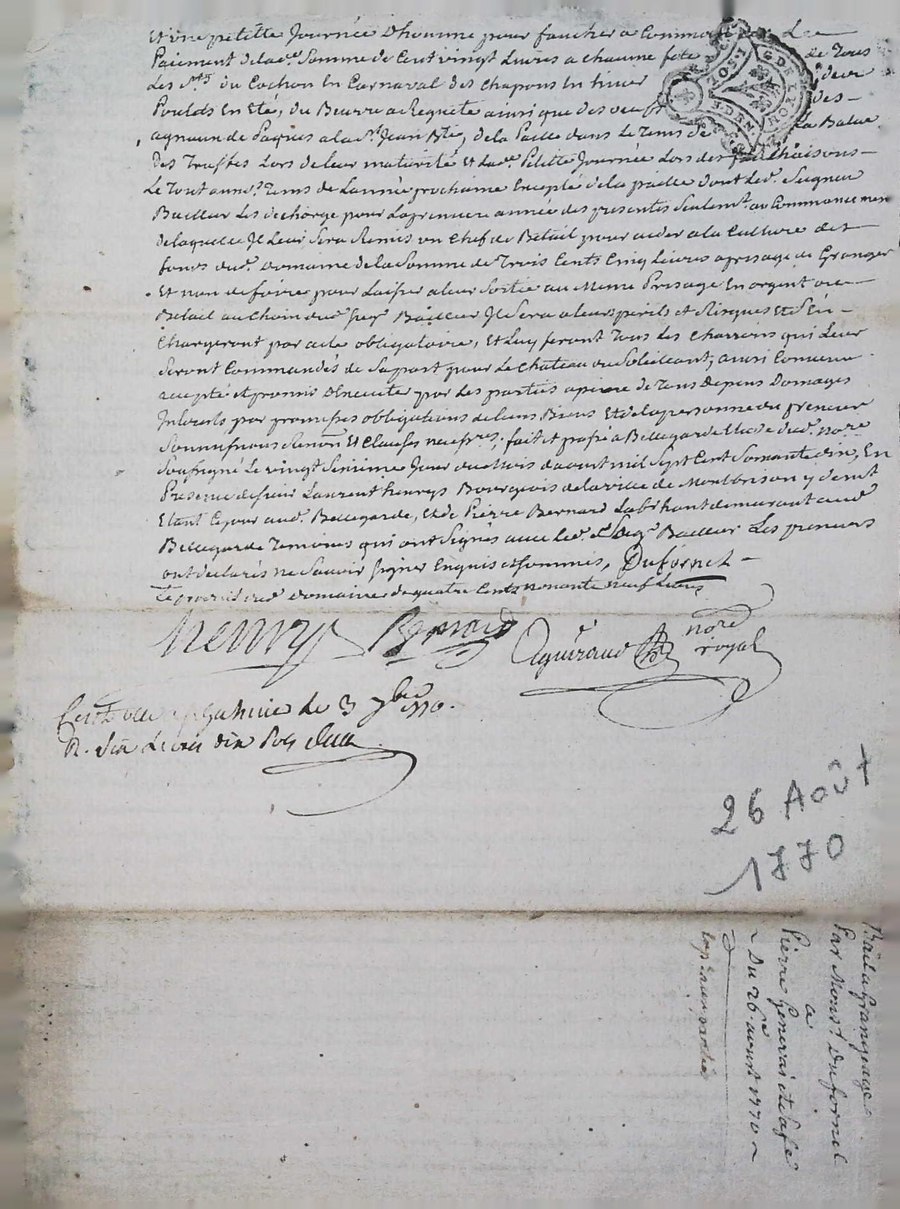 et une petitte Journée D'homme pour faucher a Commencer Le
Paiement de lad.e Somme de Cent vingt Livres a chaune fete de Tous
Les Sts du Cochon en Carnaval des chapons en hiver
Poulets En Eté, du Beurre a Requete ainsi que des oeufs des
agneaux de Paques a la St Jean Bte, de la Paille dans le Tems de La Batue
Des Truffes Lors de leur maturité et lad.e Petitte Journée Lors des fauchaisons
Le Tout aud.t Tems de L'année prochaine Excepté de la paille dont Led. Seigneur
Bailleur Les decharge pour La premiere année des presentes Seulemt. au Commancemen
de laquelle Il Leur Sera Remis un Chef de Betail pour aider a la Culture des
fonds dud. Domaine de la Somme de Trois Cents Cinq Livres a prisage de Granger
Et non de foire pour Laisser a leur Sortie au Meme Prisage En argent ou
Betail au Choix dud Seigr Bailleur Il Sera a leurs perils et Risques Et S'En
Chargeront par acte obligatoire, Et Luy feront Tous les Charrois qui Leur
Seront Commandés de Sa part pour le Chateau du Soleillant; ainsi Convenu
accepté et promis D'Executer par Les parties a peine de Tous Depens Domages
Interets par promesses obligations de leurs Biens Et de la personne du preneur
Soumissions Renon. Et Clauses necessres; fait et passé a Bellegarde Etude dud. nore
Soussigné Le vingt Sixieme Jour du Mois d'aoust mil Sept Cent Soixante dix, En
Presence de sieur Laurent henrys Bourgeois de la ville de Montbrison y d'ent
Etant Ce jour aud. Bellegarde, et de Pierre Bernard Labithant demeurant aud.
Bellegarde Temoins qui ont Signés avec led. Seigr Bailleur Les preneurs
ont declarés ne Savoir signer Enquis et Sommés, Dufornel
Le produit dud domaine de quatre Cents nonante neuf Livres
henrys Bernard Aguiraud nore royal
Controllé a le 3 7bre 1770.
R. Six Livres dix Sols
GDE LYON
26 Août
1770
Bail a Grangeage
Par Monsr. Dufornel
a
Pierre Generat et Sa fe
Du 26e aoust 1770